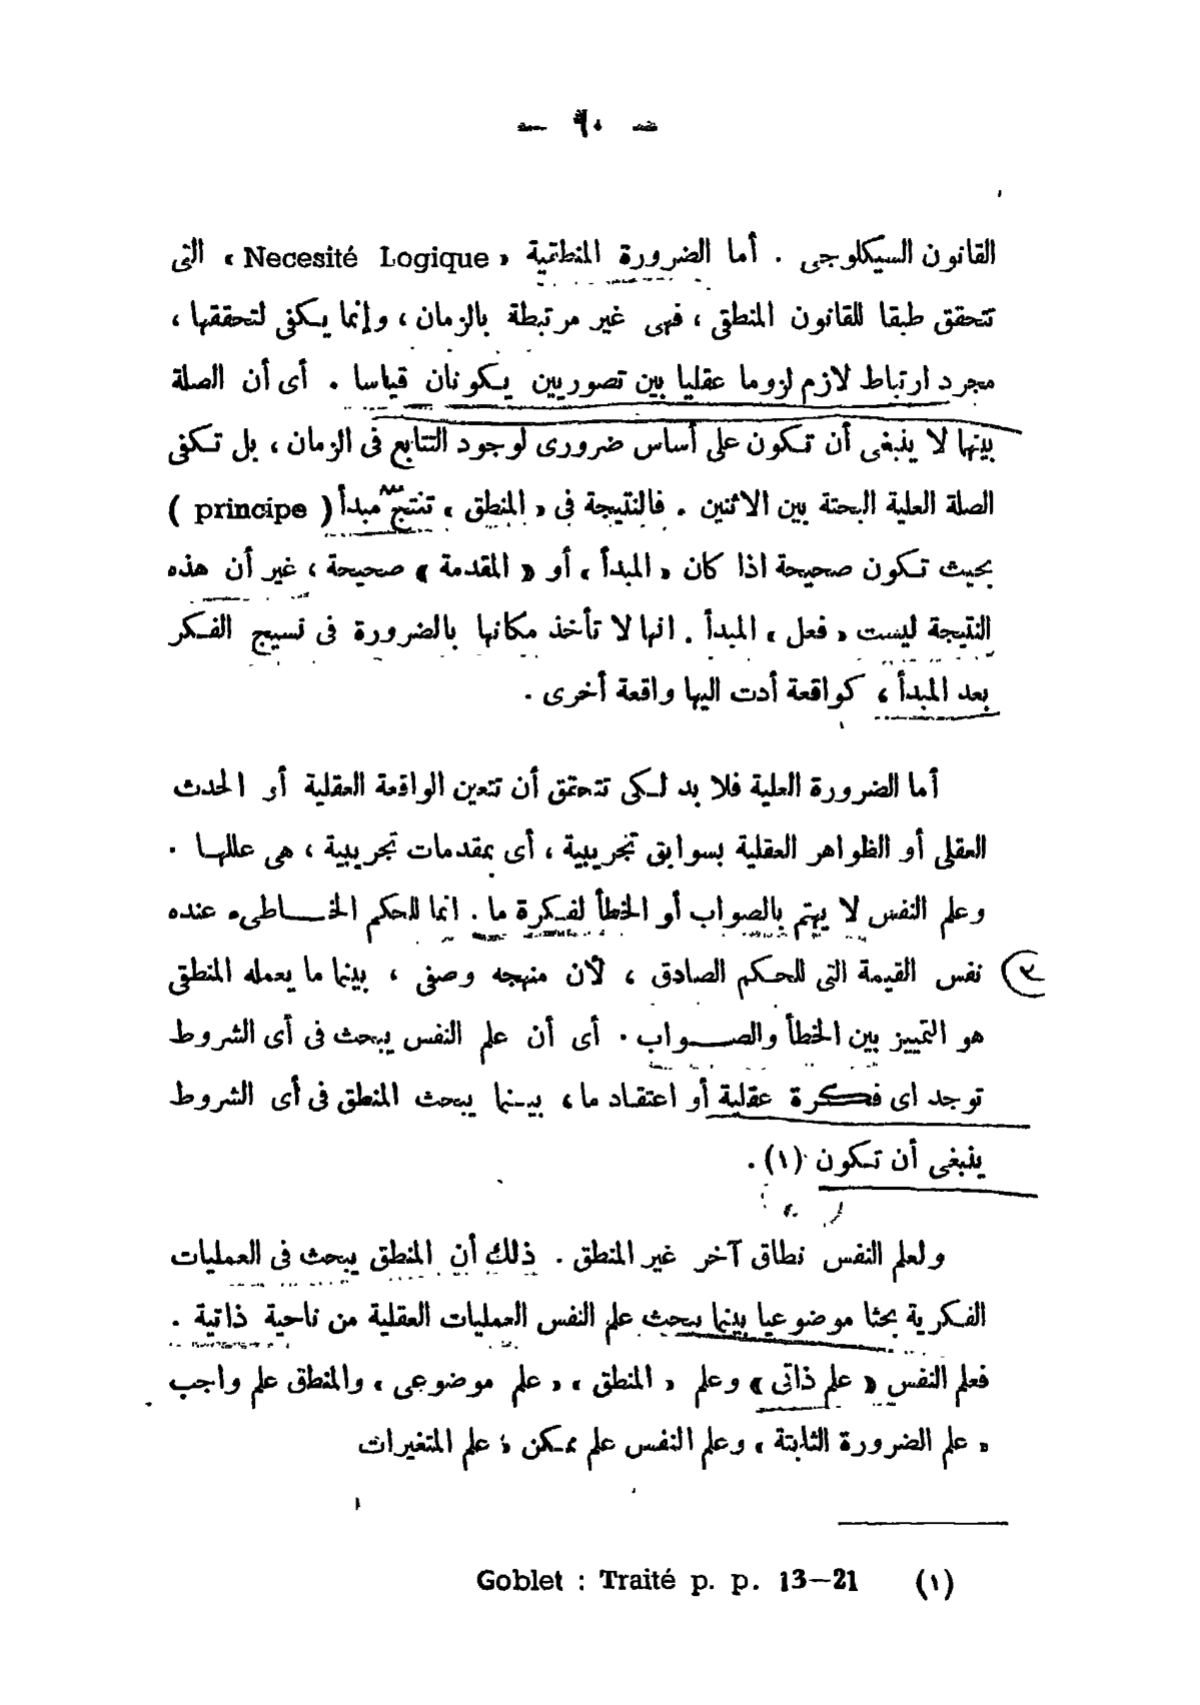 — ٦٠ —
القانون السيكلوجى . أما الضرورة المنطقية « Necesité Logique » التى
تتحقق طبقا للقانون المنطقى ، فهى غير مرتبطة بالزمان ، وإنما يكفى لتحققها ،
مجرد ارتباط لازم لزوما عقليا بين تصوريين يكونان قياسا . أى أن الصلة
بينها لا ينبغى أن تكون على أساس ضرورى لوجود التتابع فى الزمان ، بل تكفى
الصلة العلية البحتة بين الاثنين . فالنتيجة فى « المنطق » تنتج مبدأ ( principe )
بحيث تكون صحيحة اذا كان « المبدأ » أو « المقدمة » صحيحة ، غير أن هذه
النتيجة ليست « فعل » المبدأ . انها لا تأخذ مكانها بالضرورة فى نسيج الفكر
بعد المبدأ ، كواقعة أدت اليها واقعة أخرى .
أما الضرورة العلية فلا بد لكى تتحقق أن تتعين الواقعة العقلية أو الحدث
العقلى أو الظواهر العقلية بسوابق تجريبية ، أى بمقدمات تجريبية ، هى عللها .
وعلم النفس لا يهتم بالصواب أو الخطأ لفكرة ما . انما للحكم الخاطىء عنده
نفس القيمة التى للحكم الصادق ، لأن منهجه وصفى ، بينما ما يعمله المنطقى
هو التمييز بين الخطأ والصواب . أى أن علم النفس يبحث فى أى الشروط
توجد اى فكرة عقلية أو اعتقاد ما ، بينما يبحث المنطق فى أى الشروط
ينبغى أن تكون (١) .
ولعلم النفس نطاق آخر غير المنطق . ذلك أن المنطق يبحث فى العمليات
الفكرية بحثا موضوعيا بينما يبحث علم النفس العمليات العقلية من ناحية ذاتية .
فعلم النفس « علم ذاتى » وعلم « المنطق » « علم موضوعى » والمنطق علم واجب
« علم الضرورة الثابتة » وعلم النفس علم ممكن « علم المتغيرات
(١) Goblet : Traité p. p. 13—21